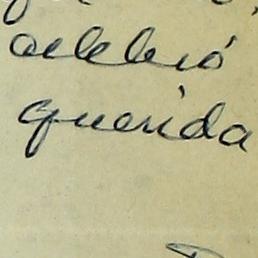 celebró
querida